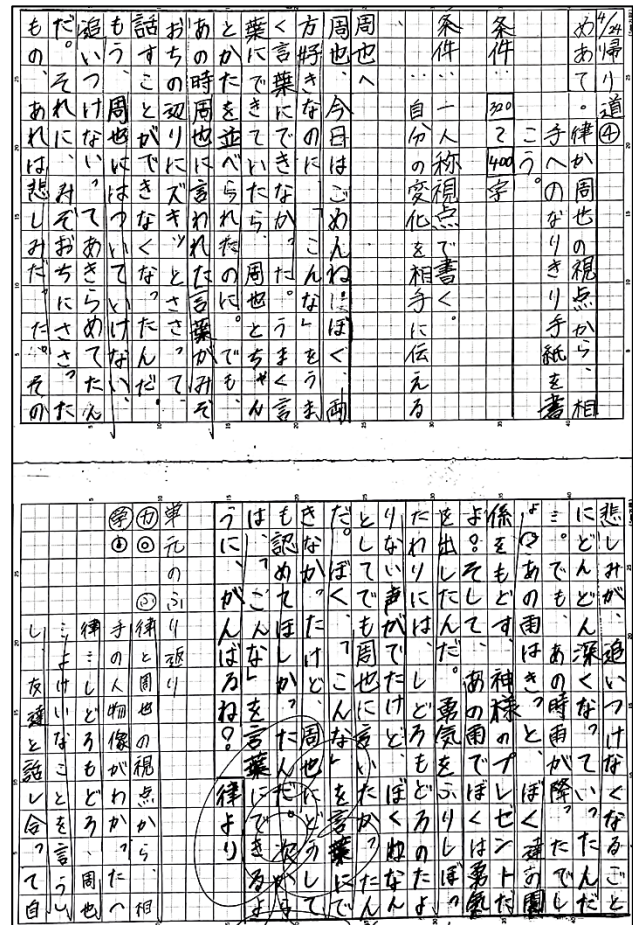 4/24 帰り道④
めあて。律か周也の視点から、相
手へのなりきり手紙を書
こう。
条件… 320〜400字
条件…一人称視点で書く。
自分の変化を相手に伝える
周也へ
周也、今日はごめんね。ぼく、両
方好きなのに「こんな」をうま
く言葉にできなかった。うまく言
葉にできていたら、周也とちゃん
とかたを並べられたのに。でも、
あの時周也に言われた言葉がみぞ
おちの辺りにズキッとささって、
話すことができなくなったんだ。
もう、周也にはついていけない、
追いつけない、ってあきらめてたん
だ。それに、みぞおちにささった
もの、あれは悲しみだった。その
悲しみが、追いつけなくなるごと
にどんどん深くなっていったんだ
…。でも、あの時雨が降ったでし
よ?あの雨はきっと、ぼく達の関
係をもどす、神様のプレゼントだ
よ。そして、あの雨でぼくは勇気
を出したんだ。勇気をふりしぼっ
たわりには、しどろもどろのしょ
りない声がでたけど、ぼくぬなた
としていても周也に言いたかったん
だ。ぼく、「こんな」を言葉にで
きなかったけど、周也にどうして
も認めてほしかったんだ。次から
は、「こんな」を言葉にできるよ
うに、がんばるね? 律より
単元のふり返り
㋕◎ ㋛律と周也の視点から、相
手の人物像がわかったへ
律…しどろもどろ、周也
…よけいなことを言うし
し、友達と話し合って自